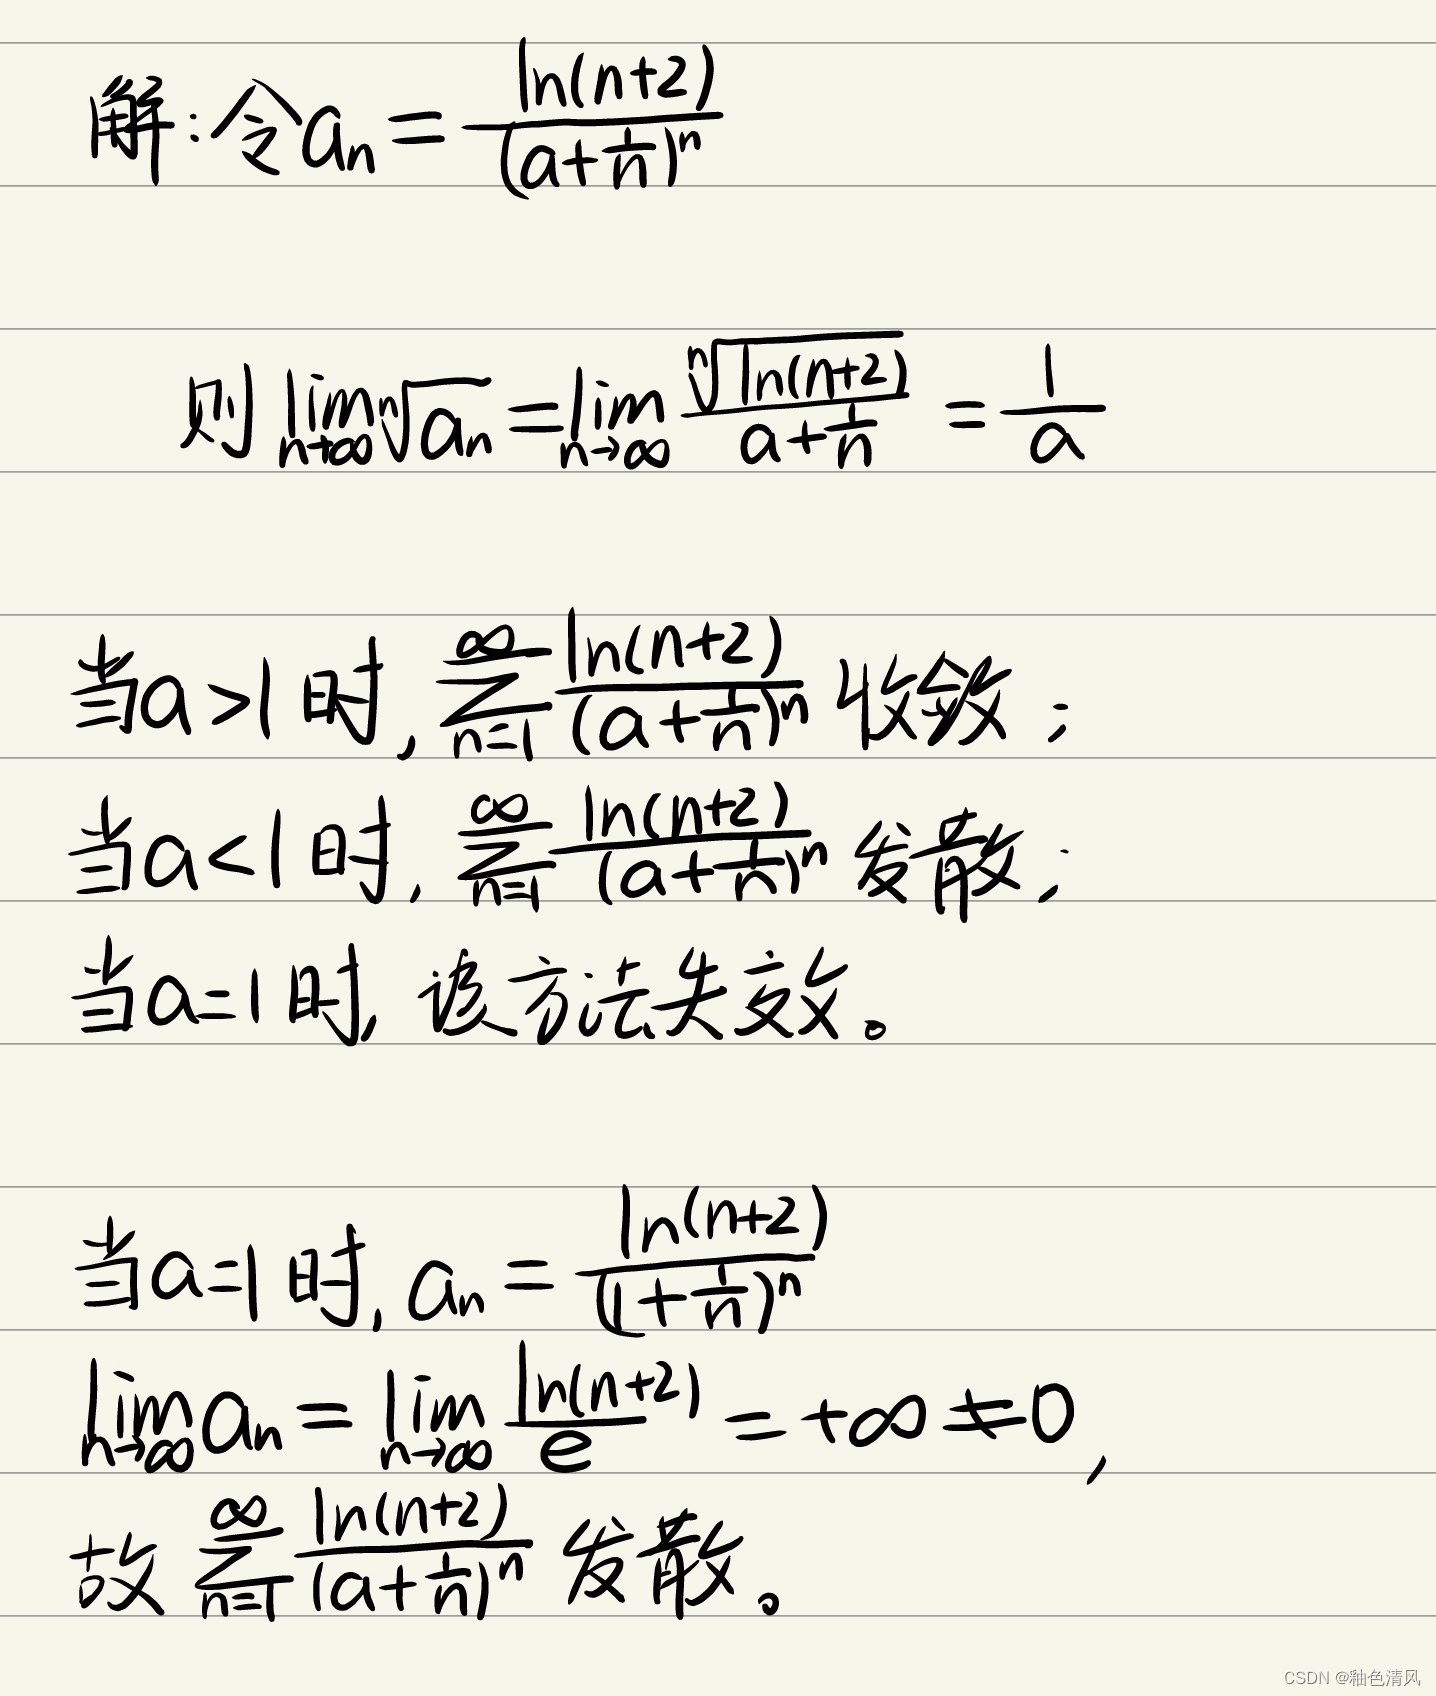 解:令aₙ = ln(n+2)/(a+1/n)ⁿ
则 lim_{n→∞} ⁿ√aₙ = lim_{n→∞} ⁿ√ln(n+2)/(a+1/n) = 1/a
当a>1时, ∑_{n=1}^{∞} ln(n+2)/(a+1/n)ⁿ 收敛;
当a<1时, ∑_{n=1}^{∞} ln(n+2)/(a+1/n)ⁿ 发散;
当a=1时, 该方法失效。
当a=1时, aₙ = ln(n+2)/(1+1/n)ⁿ
lim_{n→∞} aₙ = lim_{n→∞} ln(n+2)/e = +∞ ≠ 0,
故 ∑_{n=1}^{∞} ln(n+2)/(a+1/n)ⁿ 发散。
CSDN @釉色清风